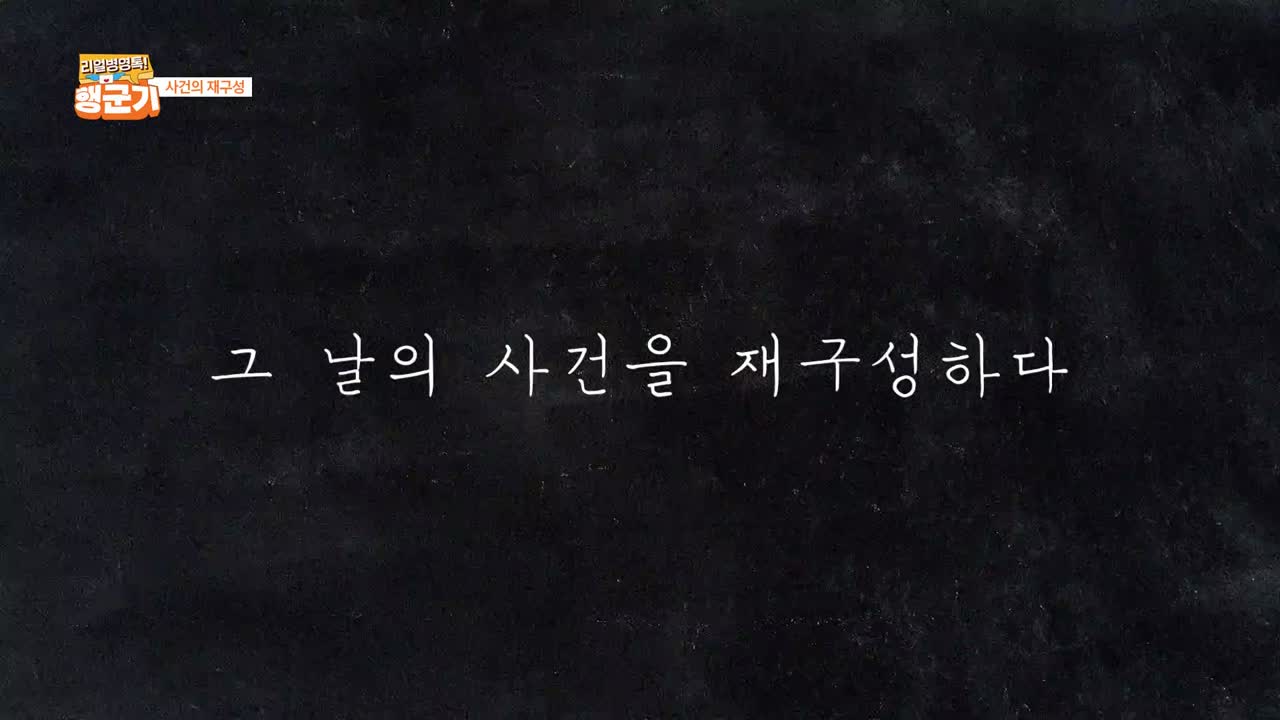 리얼병영톡!
행군기
사건의 재구성
그 날의 사건을 재구성하다